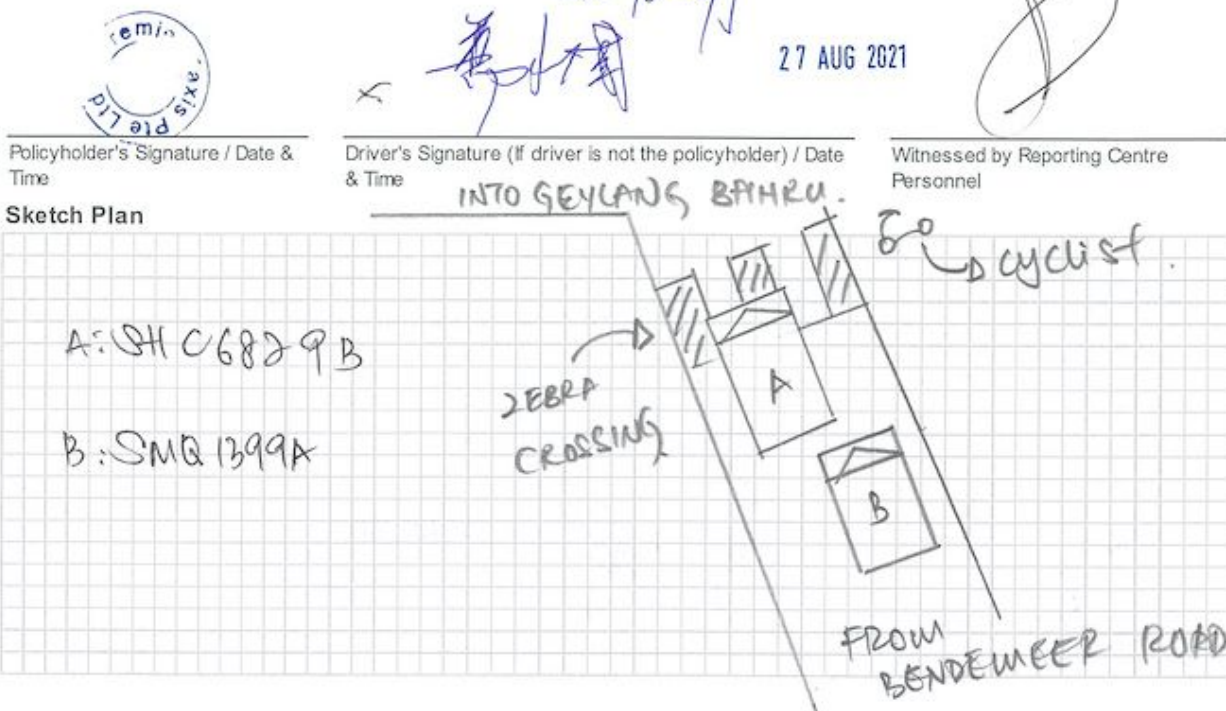 emi
axis Pte Ltd
27 AUG 2021
Policyholder's Signature / Date &
Time
Driver's Signature (If driver is not the policyholder) / Date
& Time
Witnessed by Reporting Centre
Personnel
Sketch Plan
INTO GEYLANG BAHRU.
cyclist.
A: SHC6829B
ZEBRA
CROSSING
A
B: SMQ1399A
B
FROM
BENDEMEER ROAD